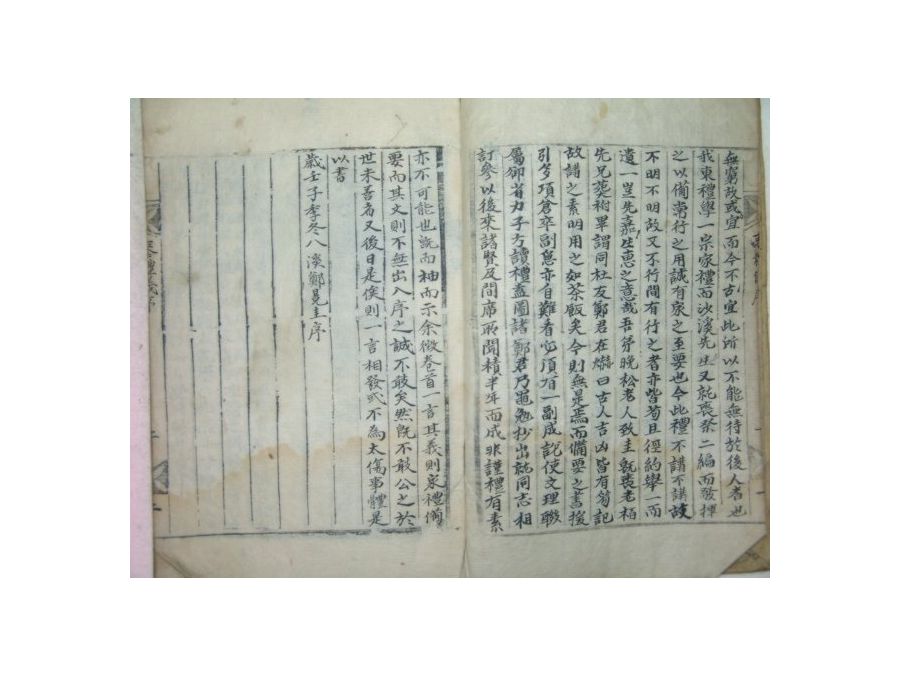 無窮故或宜而今不古宜此所以不能無待於後人者也
我東禮學一宗家禮而沙溪先生又就喪祭二編而發揮
之以備常行之用誠有家之至要也今此禮不講不講故
不明不明故又不行間有行之者亦皆苟且徑約舉一而
遺一豈先嘉生惠之意哉吾弟晚松老人致圭既喪老栢
先兄葬祔畢謂同社友鄭君在爀曰古人吉凶皆有笏記
故講之素明用之如茶飯矣今則無是焉而備要之書援
引多項倉卒副急亦自難看必須有一副成記使文理聯
屬卻省力子方讀禮盍圖諸鄭君乃黽勉抄出就同志相
訂參以後來諸賢及間席所聞積半年而成非謹禮有素
亦不可能也既而袖而示余徵卷首一言其義則家禮備
要而其文則不無出入序之誠不敢矣然既不敢公之於
世未善者又後日是俟則一言相發或不為太傷事體是
以書
歲壬子季冬八溪鄭冕圭序